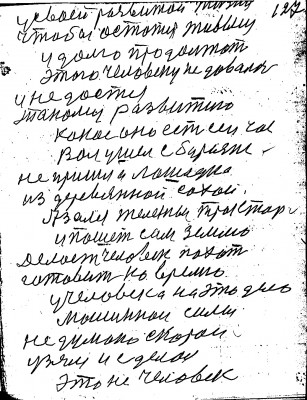 127
у своей развитой жизни
чтобы остатся живым
и долго продолжат
Этого человеку не давался
и не достиг
этакому развитию
какое оно есть сейчас
Вол ушел с борозне
не пришла лошадка
из деревянной сохой.
Взялся железный трактор
и пошет сам землю
делает человек пахот
готовит ко время
у человека на это дело
машинной силы
не думано скоро
взял и сделал
Это не человек